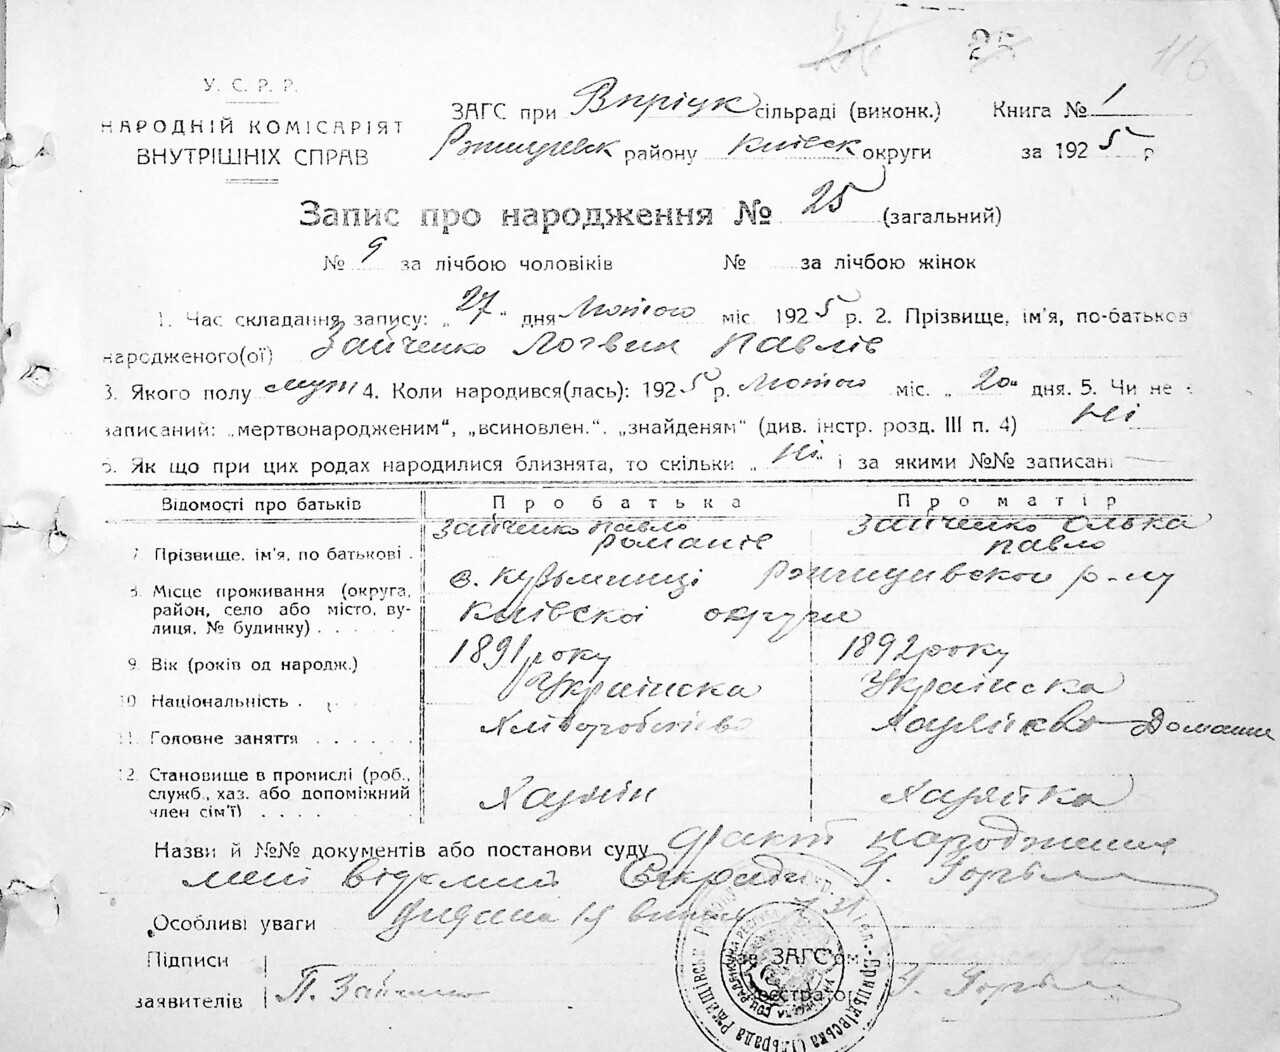 25 116
У. С. Р. Р.
НАРОДНІЙ КОМІСАРІЯТ
ВНУТРІШНІХ СПРАВ
ЗАГС при сільраді (виконк.) Книга № 1
району Київск округи за 1925 р
Запис про народження № 25 (загальний)
№ 9 за лічбою чоловіків № за лічбою жінок
1. Час складання запису: „27“ дня Лютого міс. 1925 р. 2. Прізвище, ім'я, по-батьков
народженого(ої) Зайченко Логвин Павлів
3. Якого полу муж 4. Коли народився(лась): 1925 р. Лютого міс. „20“ дня. 5. Чи не
записаний: „мертвонародженим“, „всиновлен.“, „знайденям“ (див. інстр. розд. III п. 4) Ні
6. Як що при цих родах народилися близнята, то скільки „Ні“ і за якими №№ записані
Відомості про батьків Про батька Про матір
7. Прізвище, ім'я, по батькові . Зайченко Павло Романів Зайченко Олька Павло
8. Місце проживання (округа, с. Кузьминці
район, село або місто, ву- Київскоі округи
лиця, № будинку) . . . . .
9. Вік (років од народж.) 1891 року 1892 року
10 Національність . Украінска Украінска
11. Головне заняття . . . . . . Домашнє
12. Становище в промислі (роб.,
служб., хаз. або допоміжний Хазяін Хазяйка
член сім'ї) . . . . .
Назви й №№ документів або постанови суду факт народження
мені відомий Секрадi Г.
Особливі уваги
Підписи Зав ЗАГС'ом
заявителів П. Зайченко Реєстратор Г.